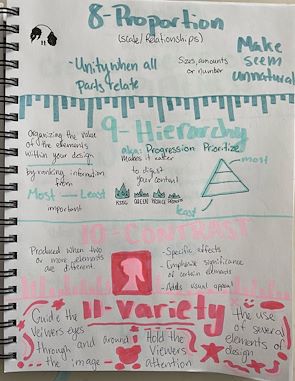 8-Proportion
(scale/Relationships)
-Unity when all
Parts relate
Sizes, amounts
or number
Make
seem
unnatural
9-Hierarchy
Organizing the value
of the elements
within your design
by ranking information
from
Most — Least
important
aka: Progression Prioritize
makes it easier
to digest
your content
KING QUEEN PRINCE
most
least
10-CONTRAST
Produced when two
or more elements
are different.
- Specific effects
- Emphasize significance
of certain elements
- Adds visual appeal
11-Variety
Guide the
Veiwers eyes
through and around
the image
Hold the
Viewers
attention
the use of
several
elements of
design